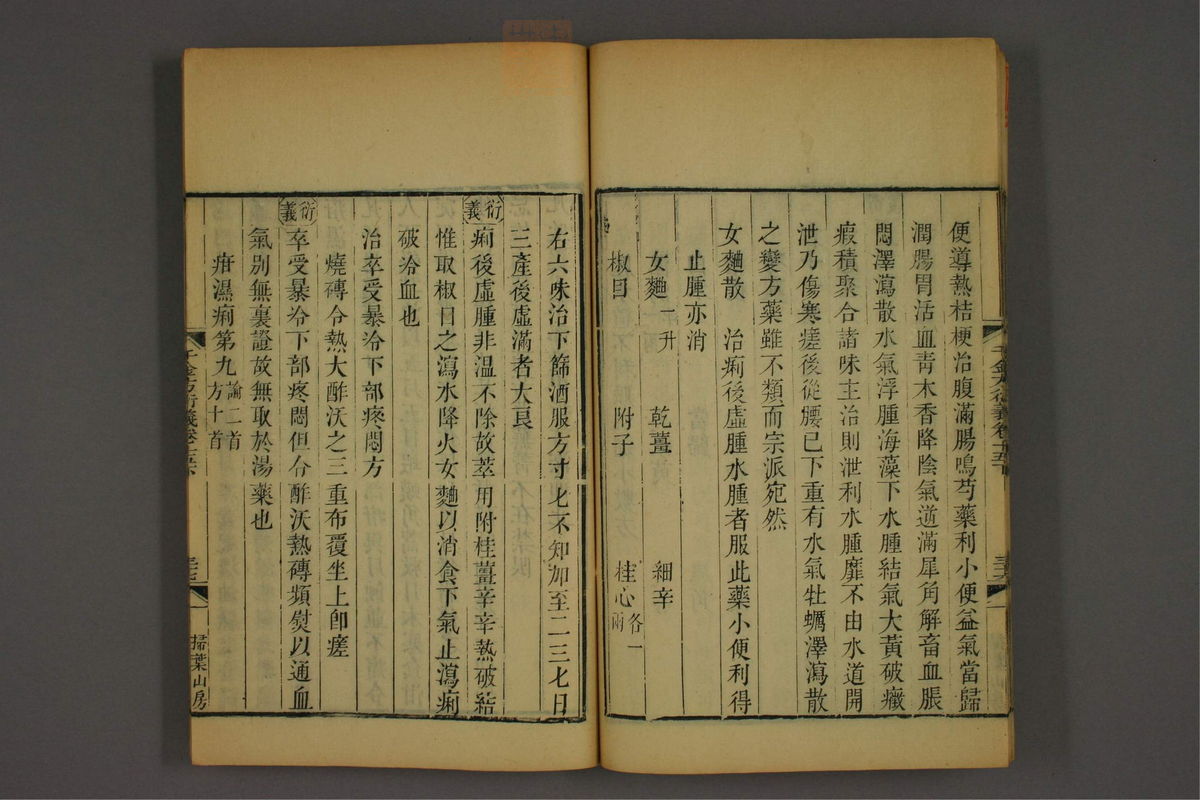 便導熱桔梗治腹滿腸鳴芍藥利小便益氣當歸
潤腸胃活血靑木香降陰氣逆滿犀角解畜血脹
悶澤瀉散水氣浮腫海藻下水腫結氣大黃破癥
瘕積聚合諸味主治則泄利水腫靡不由水道開
泄乃傷寒瘥後從腰已下重有水氣牡蠣澤瀉散
之變方藥雖不類而宗派宛然
女麯散 治痢後虛腫水腫者服此藥小便利得
止腫亦消
女麯一升 乾薑 細辛
椒目 附子 桂心各一兩
右六味治下篩酒服方寸匕不知加至二三七日
三產後虛滿者大良
衍義 痢後虛腫非溫不除故萃用附桂薑辛辛熱破結
惟取椒目之瀉水降火女麯以消食下氣止瀉痢
破冷血也
治卒受暴冷下部疼悶方
燒磚令熱大酢沃之三重布覆坐上卽瘥
衍義 卒受暴冷下部疼悶但令酢沃熱磚頻熨以通血
氣別無裏證故無取於湯藥也
疳濕痢第九論二首方十首
千金方衍義卷十五下
掃葉山房